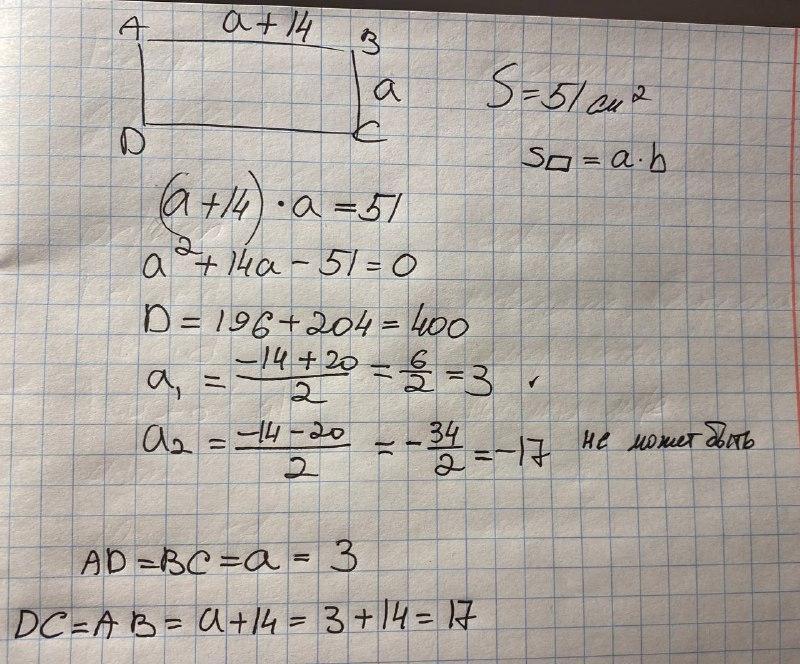 A a+14 B
a
D C
S=51 см²
S▭ = a·b
(a+14)·a=51
a²+14a-51=0
D=196+204=400
a₁ = (-14+20)/2 = 6/2 = 3
a₂ = (-14-20)/2 = -34/2 = -17 не может быть
AD=BC=a=3
DC=AB=a+14=3+14=17